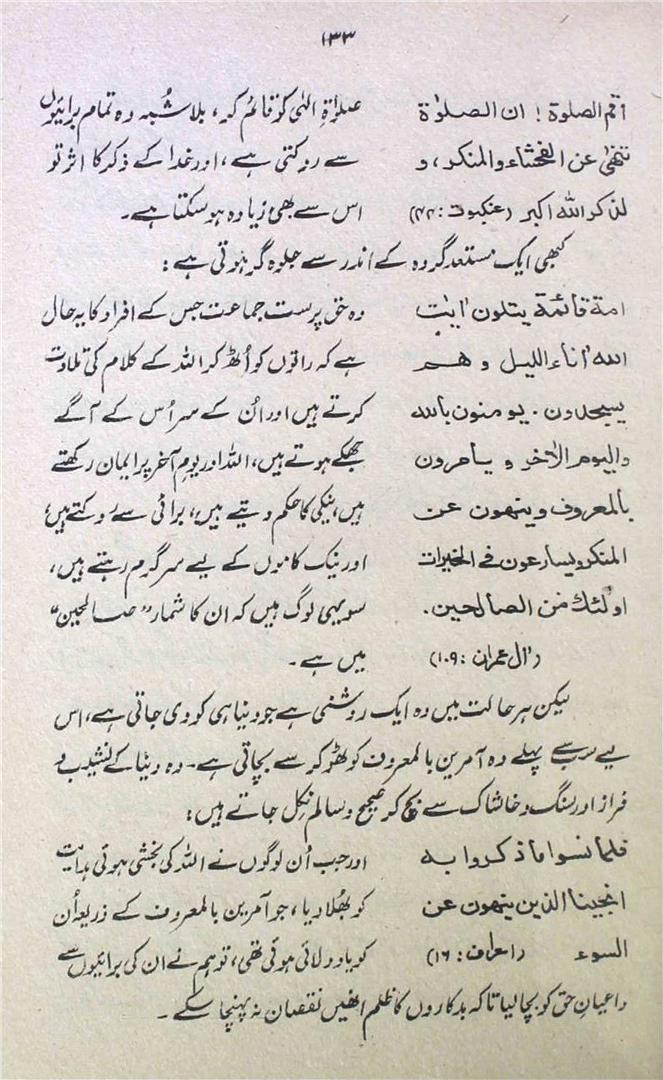 ۱۳۳
اقم الصلوة! ان الصلوٰة
تنهیٰ عن الفحشاء والمنکر، و
لذکر الله اکبر (عنکبوت: ۴۴)
صلوٰۃِ الٰہی کو قائم کر، بلا شُبہ وہ تمام برائیوں
سے روکتی ہے، اور خدا کے ذکر کا اثر تو
اس سے بھی زیادہ ہو سکتا ہے۔
کبھی ایک مستعد گروہ کے اندر سے جلوہ گر ہوتی ہے:
امة قائمة یتلون اٰیٰت
الله اٰناء اللیل و هم
یسجدون. یومنون بالله
والیوم الاٰخر و یامرون
بالمعروف وینهون عن
المنکر ویسارعون فی الخیرات
اولٰئك من الصالحین.
(اٰل عمران: ۱۰۹)
وہ حق پرست جماعت جس کے افراد کا یہ حال
ہے کہ راتوں کو اُٹھ کر اللہ کے کلام کی تلاوت
کرتے ہیں اور اُن کے سر اُس کے آگے
جھکے ہوتے ہیں، اللہ اور یوم آخر پر ایمان رکھتے
ہیں، نیکی کا حکم دیتے ہیں، برائی سے روکتے ہیں،
اور نیک کاموں کے لیے سرگرم رہتے ہیں،
سو یہی لوگ ہیں کہ ان کا شمار "صالحین"
میں ہے۔
لیکن ہر حالت میں وہ ایک روشنی ہے جو دنیا ہی کو دی جاتی ہے، اس
لیے سب سے پہلے وہ آمرین بالمعروف کو ٹھوکر سے بچاتی ہے۔ وہ دنیا کے نشیب و
فراز اور سنگ و خاشاک سے بچ کر صحیح و سالم نکل جاتے ہیں:
فلما نسوا ما ذکروا به
انجینا الذین ینهون عن
السوء (اعراف: ۱۶)
اور جب اُن لوگوں نے اللہ کی بخشی ہوئی ہدایت
کو بھُلا دیا، جو آمرین بالمعروف کے ذریعہ اُن
کو یاد دلائی ہوئی تھی، تو ہم نے ان کی برائیوں سے
داعیانِ حق کو بچا لیا تاکہ بدکاروں کا ظلم انھیں نقصان نہ پہنچا سکے۔